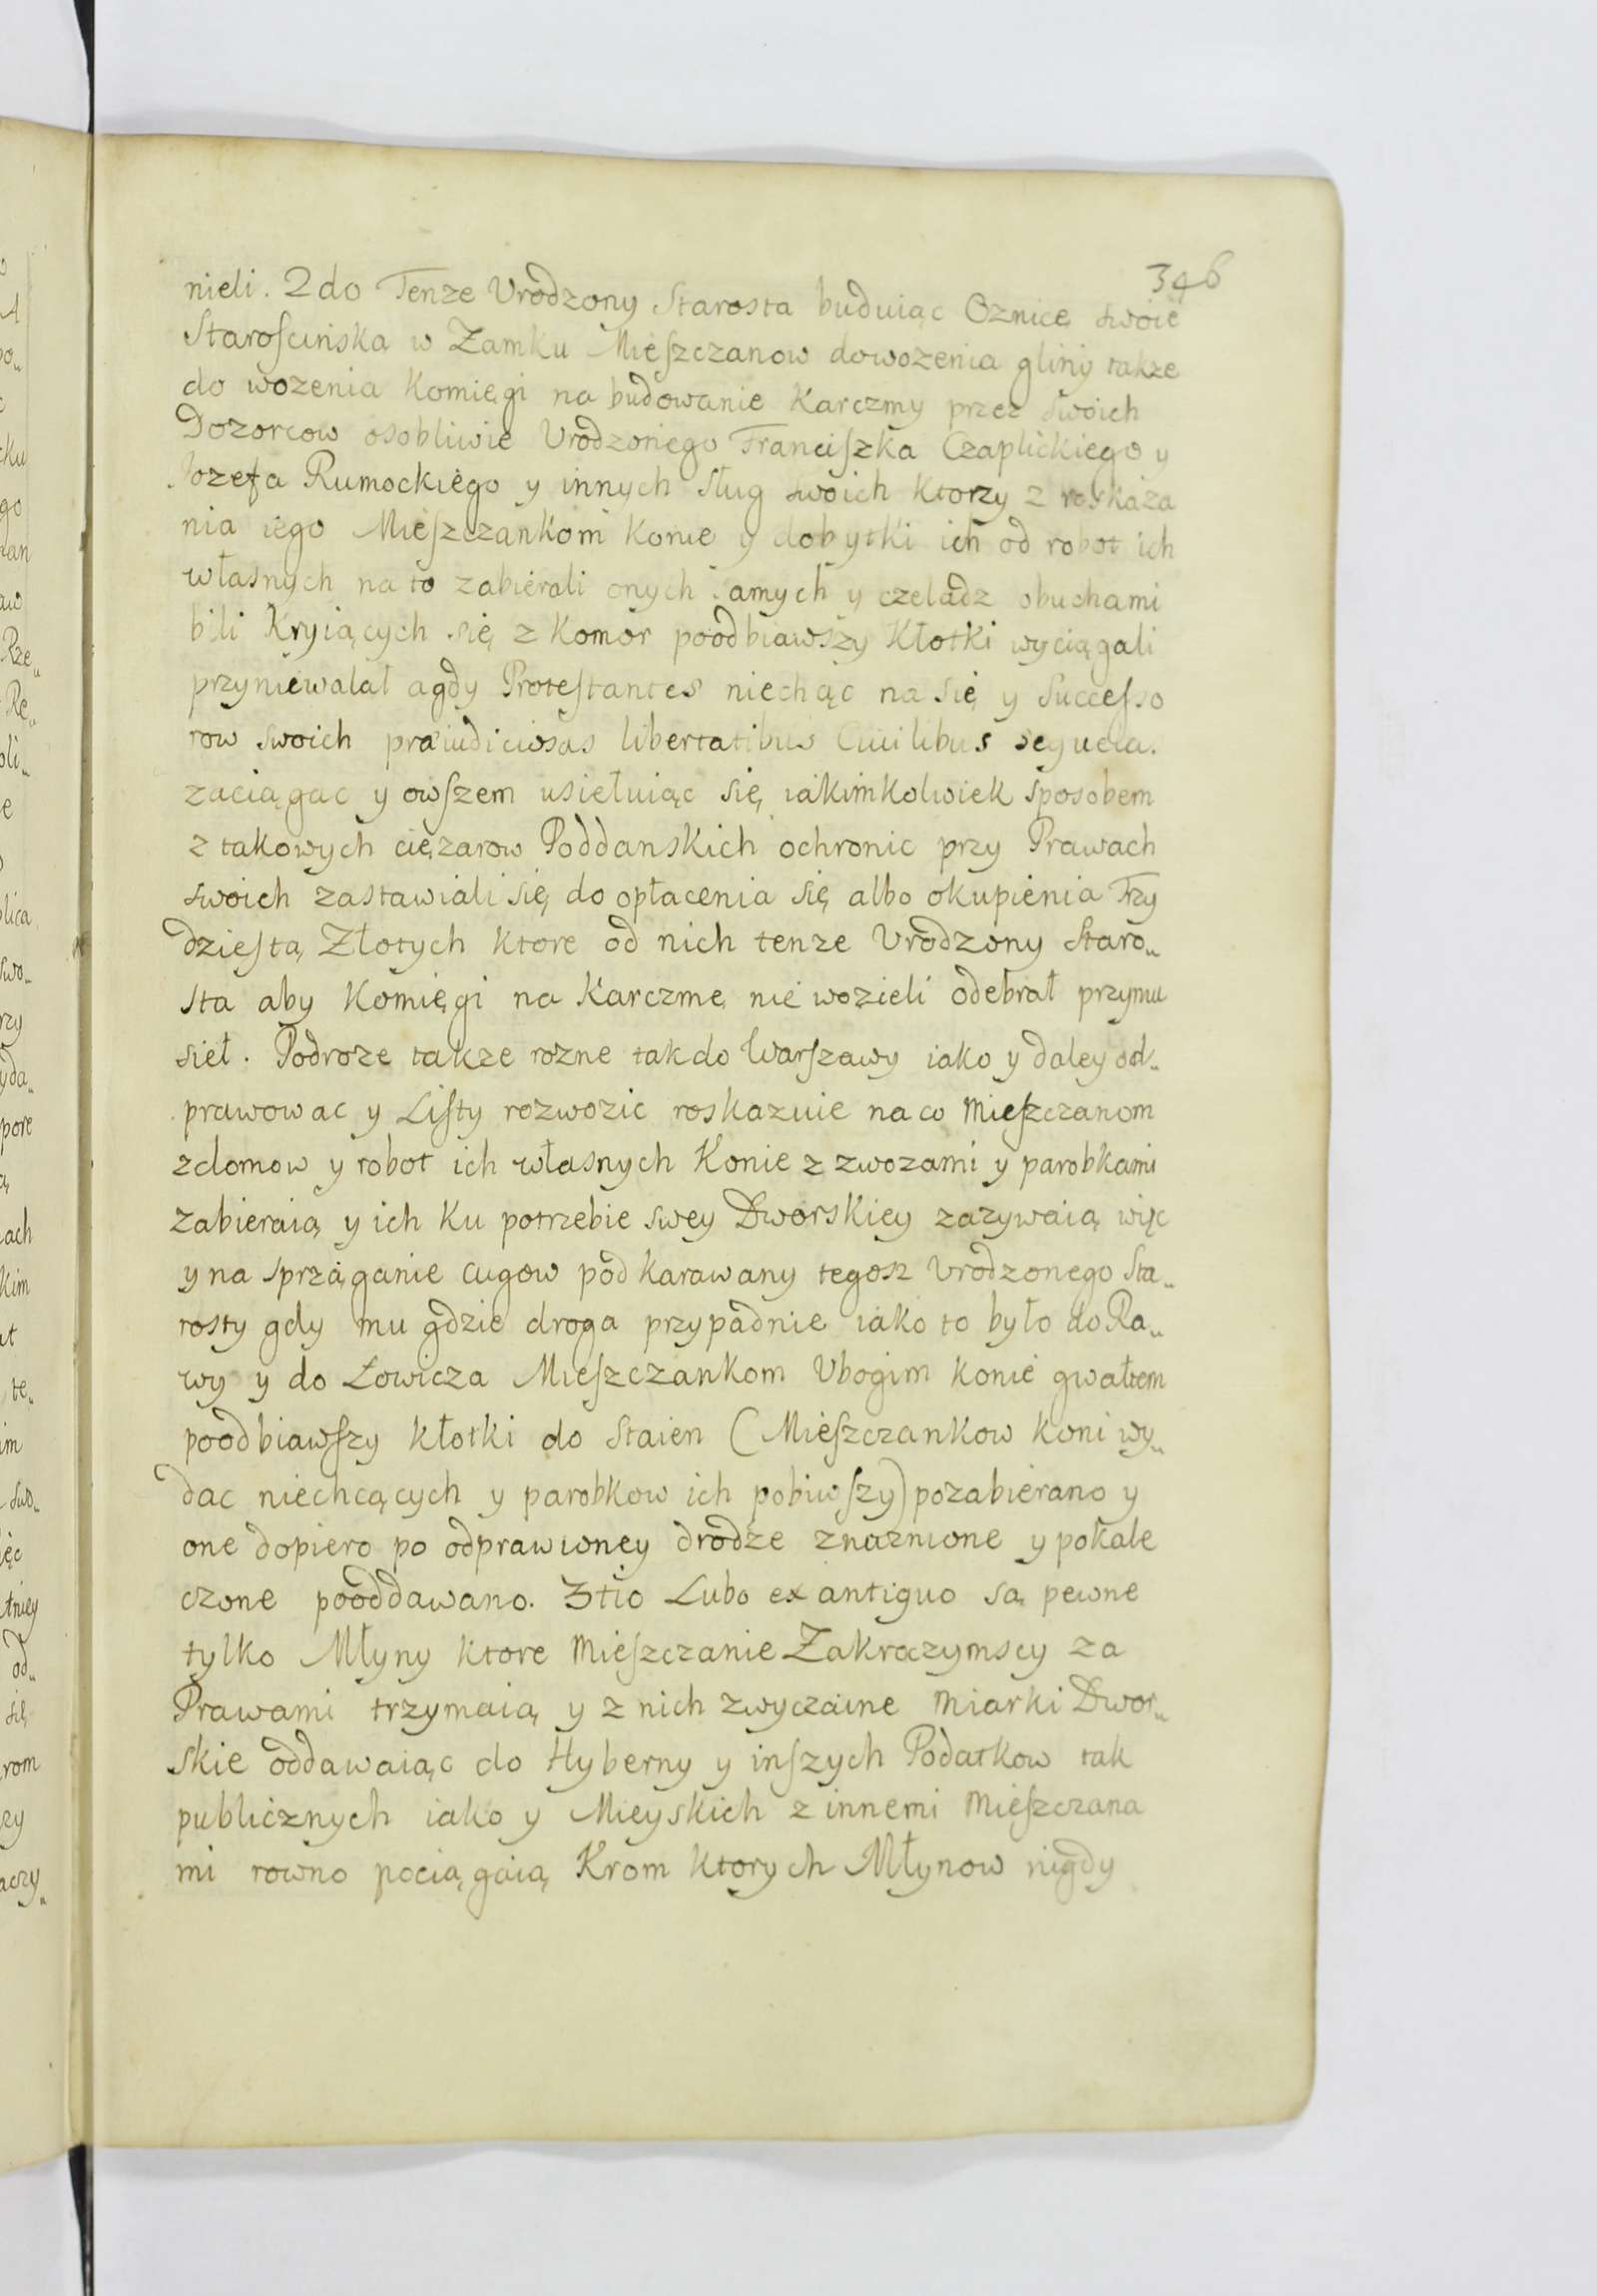 346
nieli. 2do Tenze Vrodzony Starosta buduiąc Oznicę swoię
Starościńska w Zamku Mieszczanow dowozenia gliny takze
do wozenia Komięgi na budowanie Karczmy przez swoich
Dozorcow osobliwie Vrodzonego Franciszka Czaplickiego y
Jozefa Rumockiego y innych sług swoich ktorzy z roskaza
nia iego Mieszczankom konie y dobytki ich od robot ich
własnych na to zabierali onych samych y czeladz obuchami
bili Kryiących się z Komor poodbiawszy Kłotki wyciągali
przyniewalał a gdy Protestantes niechąc na się y Successo
row swoich præiudiciosas libertatibus Ciuilibus sequela.
zaciągac y owszem usiełuiąc się iakimkolwiek sposobem
z takowych cięzarow Poddanskich ochronic przy Prawach
swoich zastawiali się do opłacenia się albo okupienia Trzy
dziestą Złotych ktore od nich tenze Vrodzony Staro„
sta aby Komięgi na Karczmę nie wozieli odebrał przymu
sieł. Podroze takze rozne tak do Warszawy iako y daley od„
prawowac y Listy rozwozic roskazuie na co Mieszczanom
z domow y robot ich własnych Konie z zwozami y parobkami
zabieraią y ich ku potrzebie swey Dworskiey zazywaią więc
y na sprząganie cugow pod karawany tegosz Vrodzonego Sta„
rosty gdy mu gdzie droga przypadnie iako to było do Ra„
wy y do Łowicza Mieszczankom Vbogim konie gwałtem
poodbiawszy kłotki do staien (Mieszczankow koni wy„
dac niechcących y parobkow ich pobiwszy) pozabierano y
one dopiero po odprawioney drodze znuznione y pokale
czone pooddawano. 3tio Lubo ex antiquo są pewne
tylko Młyny ktore Mieszczanie Zakroczymscy za
Prawami trzymaią y z nich zwyczaine miarki Dwor„
skie oddawaiąc do Hyberny y inszych Podatkow tak
publicznych iako y Mieyskich z innemi Mieszczana
mi rowno pociągaią Krom ktorych Młynow nigdy